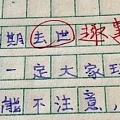 期去世
一定大家
能不注意，